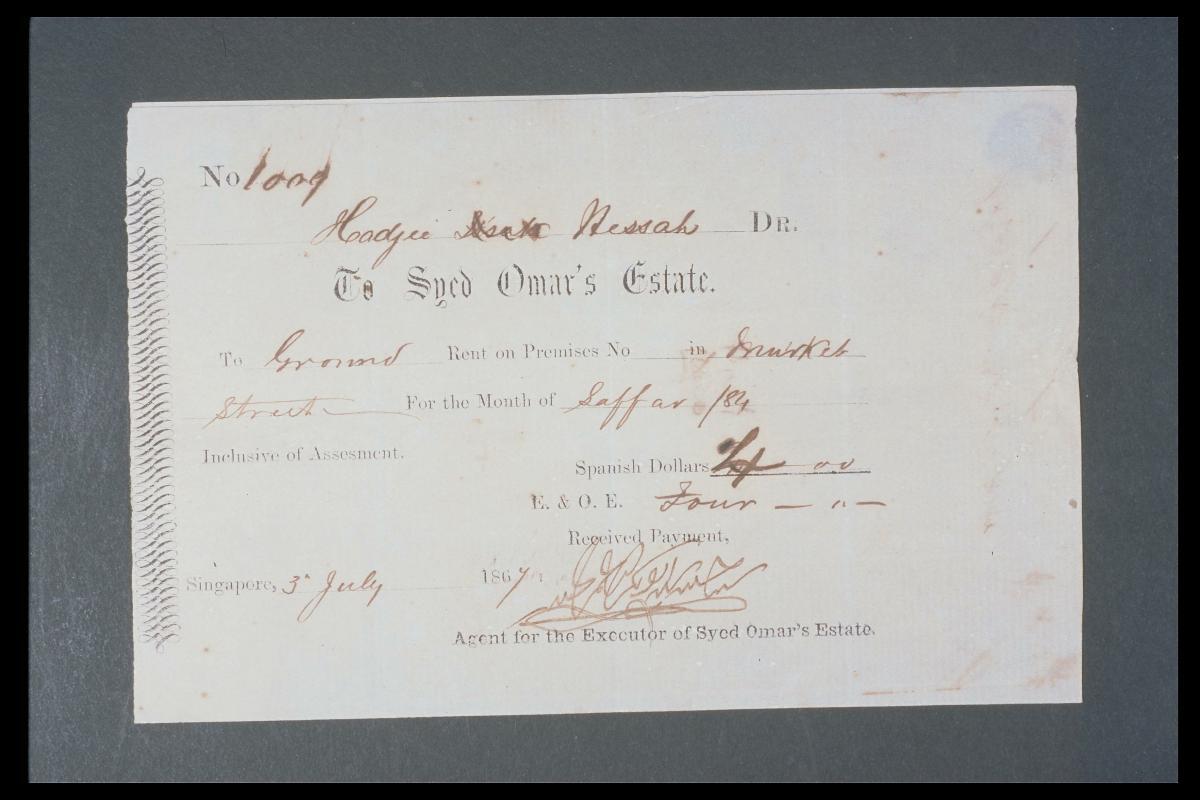 No 1009
Hadjee Nessah DR.
To Syed Omar's Estate.
To Ground Rent on Premises No in Market
Street For the Month of Saffar /84
Inclusive of Assesment.
Spanish Dollars 4 00
E. & O. E. Four — „ —
Received Payment,
Singapore, 3d July 1867
Agent for the Executor of Syed Omar's Estate.